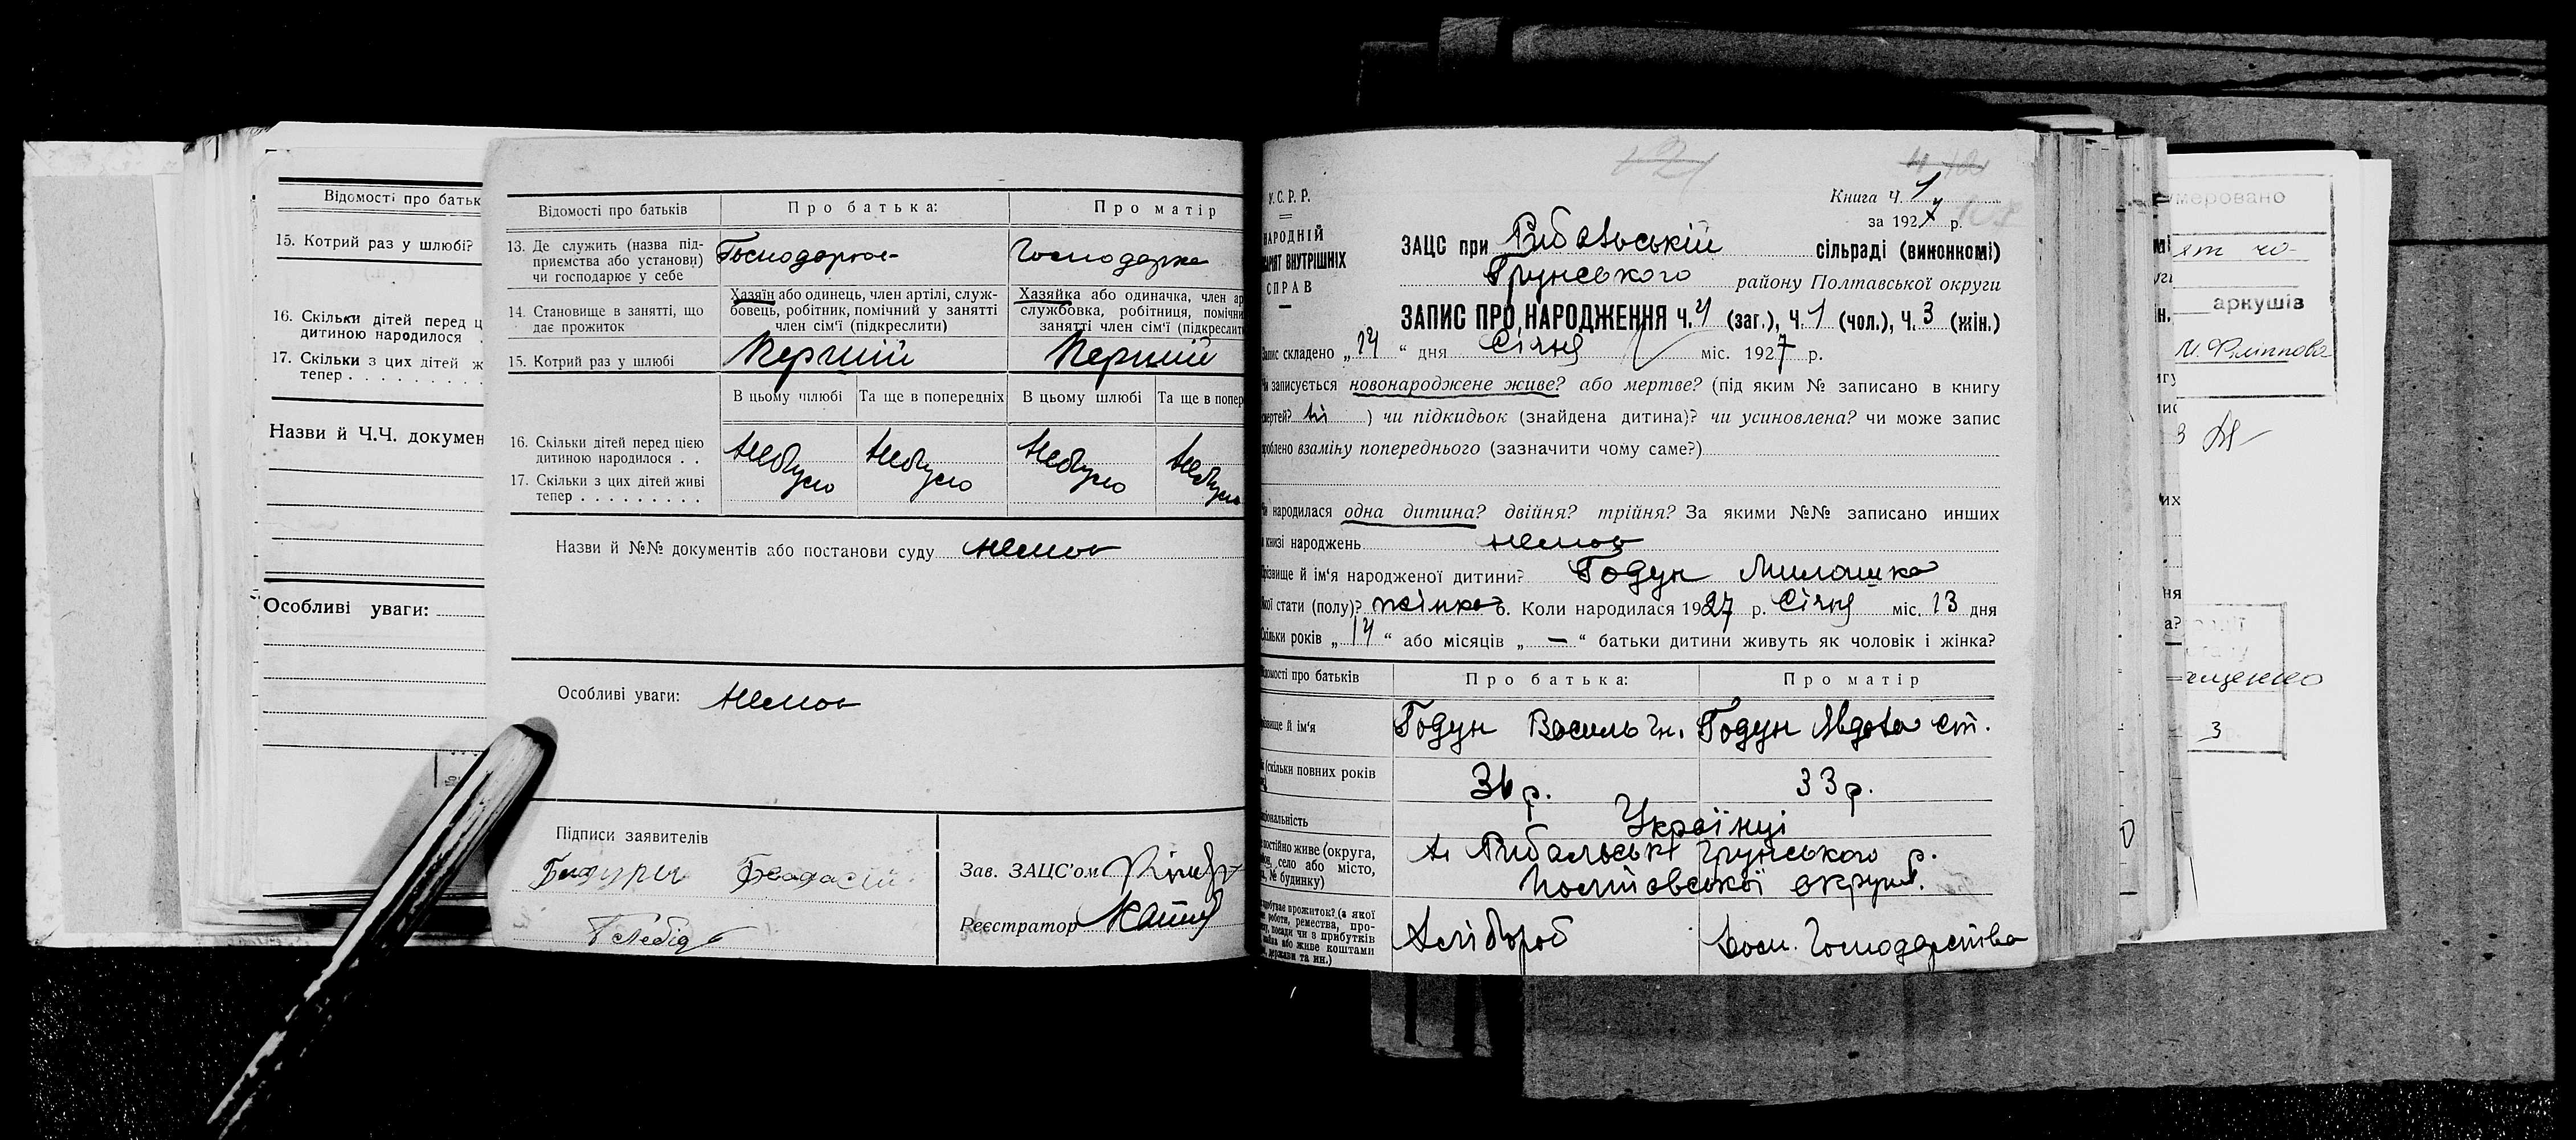 Відомості про батьк
15. Котрий раз у шлюбі?
16. Скільки дітей перед ц
дитиною народилося
17. Скільки з цих дітей ж
тепер . . . . . . . . .
Назви й Ч.Ч. докумен
Особливі уваги:
Відомості про батьків
Про батька:
Про матір
13. Де служить (назва під-
приємства або установи)
чи господарює у себе
Господарює
Господарка
14. Становище в занятті, що
дає прожиток
Хазяїн або одинець, член артілі, служ-
бовець, робітник, помічний у занятті
член сім'ї (підкреслити)
Хазяйка або одиначка, член ар
службовка, робітниця, помічни
занятті член сім'ї (підкреслити
15. Котрий раз у шлюбі
Перший
Перший
В цьому шлюбі
Та ще в попередніх
В цьому шлюбі
Та ще в попер
16. Скільки дітей перед цією
дитиною народилося . .
17. Скільки з цих дітей живі
тепер . . . . . . . . .
Небуло
Небуло
Небуло
Небуло
Назви й №№ документів або постанови суду немає
Особливі уваги: Немає
Підписи заявителів
Зав. ЗАЦС'ом
Реєстратор
У.С.Р.Р.
НАРОДНІЙ
ВНУТРІШНІХ
СПРАВ
Книга Ч. 1
за 1927 р.
ЗАЦС при Рибальській сільраді (виконкомі)
Грунського району Полтавської округи
ЗАПИС ПРО НАРОДЖЕННЯ Ч. 4 (заг.), Ч. 1 (чол.), Ч. 3 (жін.)
Запис складено „14“ дня Січня міс. 1927 р.
Чи записується новонароджене живе? або мертве? (під яким № записано в книгу
смертей? ні ) чи підкидьок (знайдена дитина)? чи усиновлена? чи може запис
зроблено взаміну попереднього (зазначити чому саме?)
Чи народилася одна дитина? двійня? трійня? За якими №№ записано инших
в книзі народжень немає
Прізвище й ім'я народженої дитини? Годун Милашка
Якої стати (полу)? жінкаб. Коли народилася 1927 р. Січня міс. 13 дня
Скільки років „14“ або місяців „—“ батьки дитини живуть як чоловік і жінка?
Відомості про батьків
Про батька:
Про матір
Прізвище й ім'я
Годун Василь Гн.
Годун Явдоха Ст.
(скільки повних років
36 р.
33 р.
національність
Українці
постійно живе (округа,
село або місто,
№ будинку)
Рибальські Грунського р.
Полтавської округи.
прожиток? (з якої
роботи, ремества, про-
посади чи з прибутків
або живе коштами
держави та ин.)
Хлібороб
Дом. Господарства
умеровано
аркушів